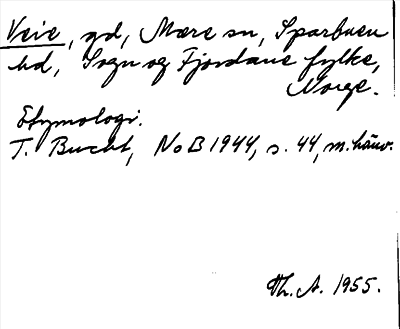 Veie, gd, Mære sn, Sparbuen
hd, Sogn og Fjordane fylke,
Norge.
Etymologi.
T. Bucht, NoB 1944, s. 44, m. hänv.
Th. A. 1955.